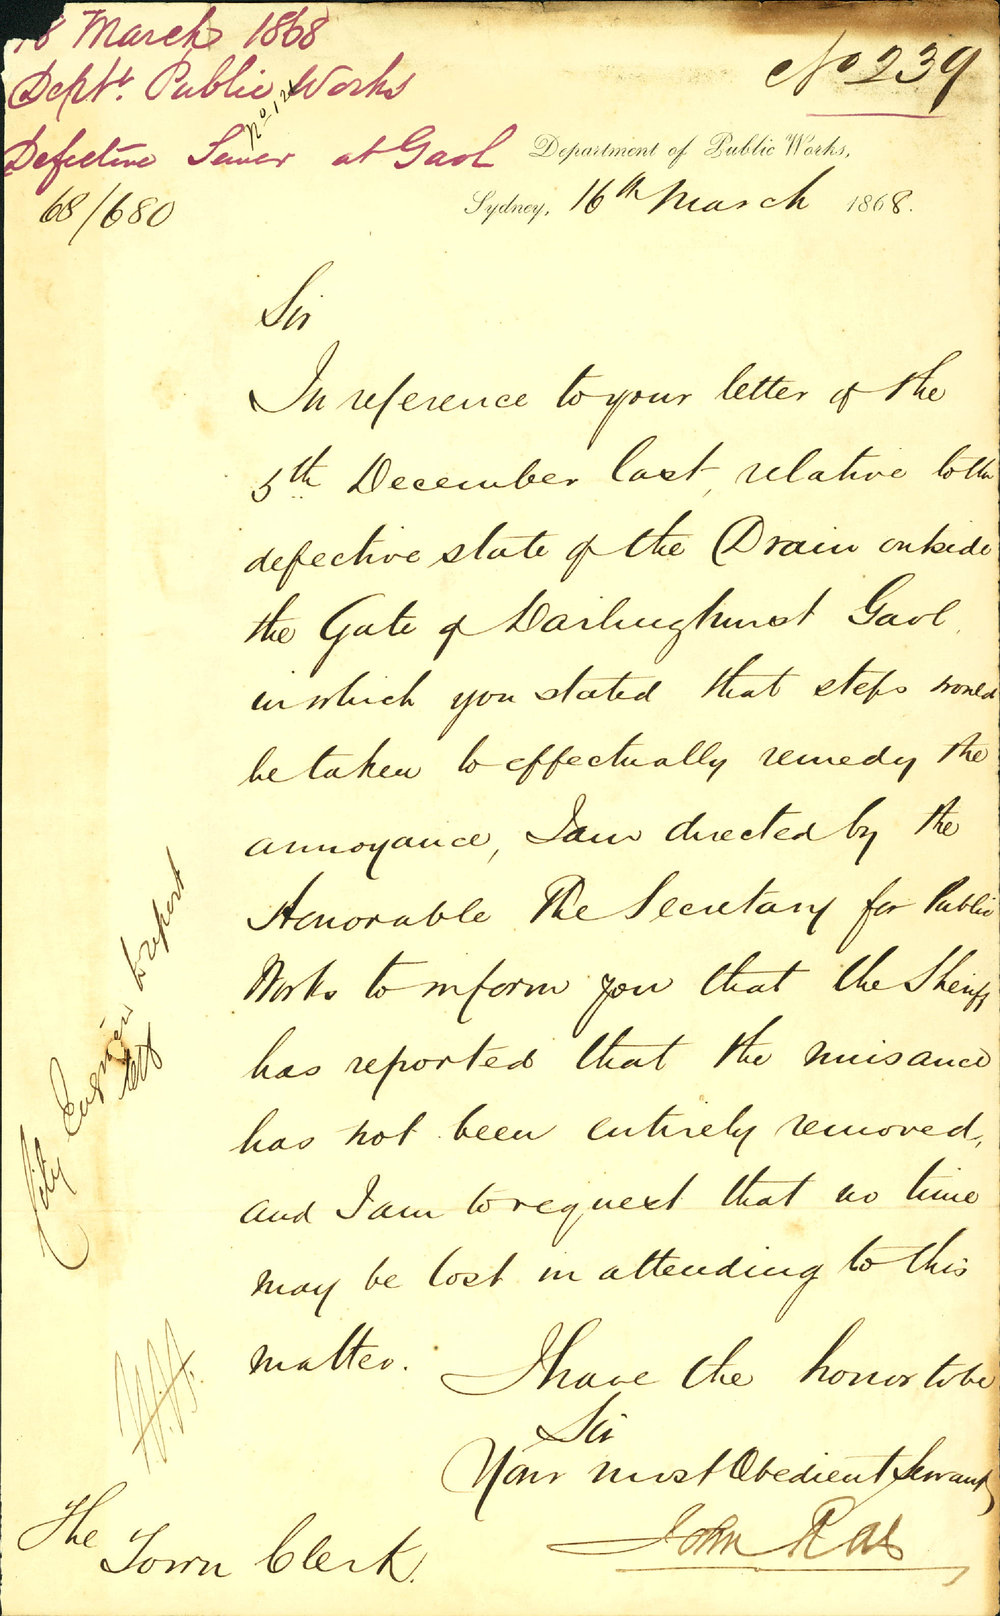 18 March 1868
Deptt. Public Works
No 12
Defective Sewer at Gaol
68/680
No 239
Department of Public Works,
Sydney, 16th March 1868.
Sir
In reference to your letter of the
5th December last, relative to the
defective state of the Drain outside
the Gate of Darlinghurst Gaol,
in which you stated that steps would
be taken to effectually remedy the
annoyance, I am directed by the
Honorable The Secretary for Public
Works to inform you that the Sheriff
has reported that the nuisance
has not been entirely removed,
and I am to request that no time
may be lost in attending to this
matter.
I have the honor to be
Sir
Your most Obedient Servant,
John Rae
The
Town Clerk.
City Engineer to report